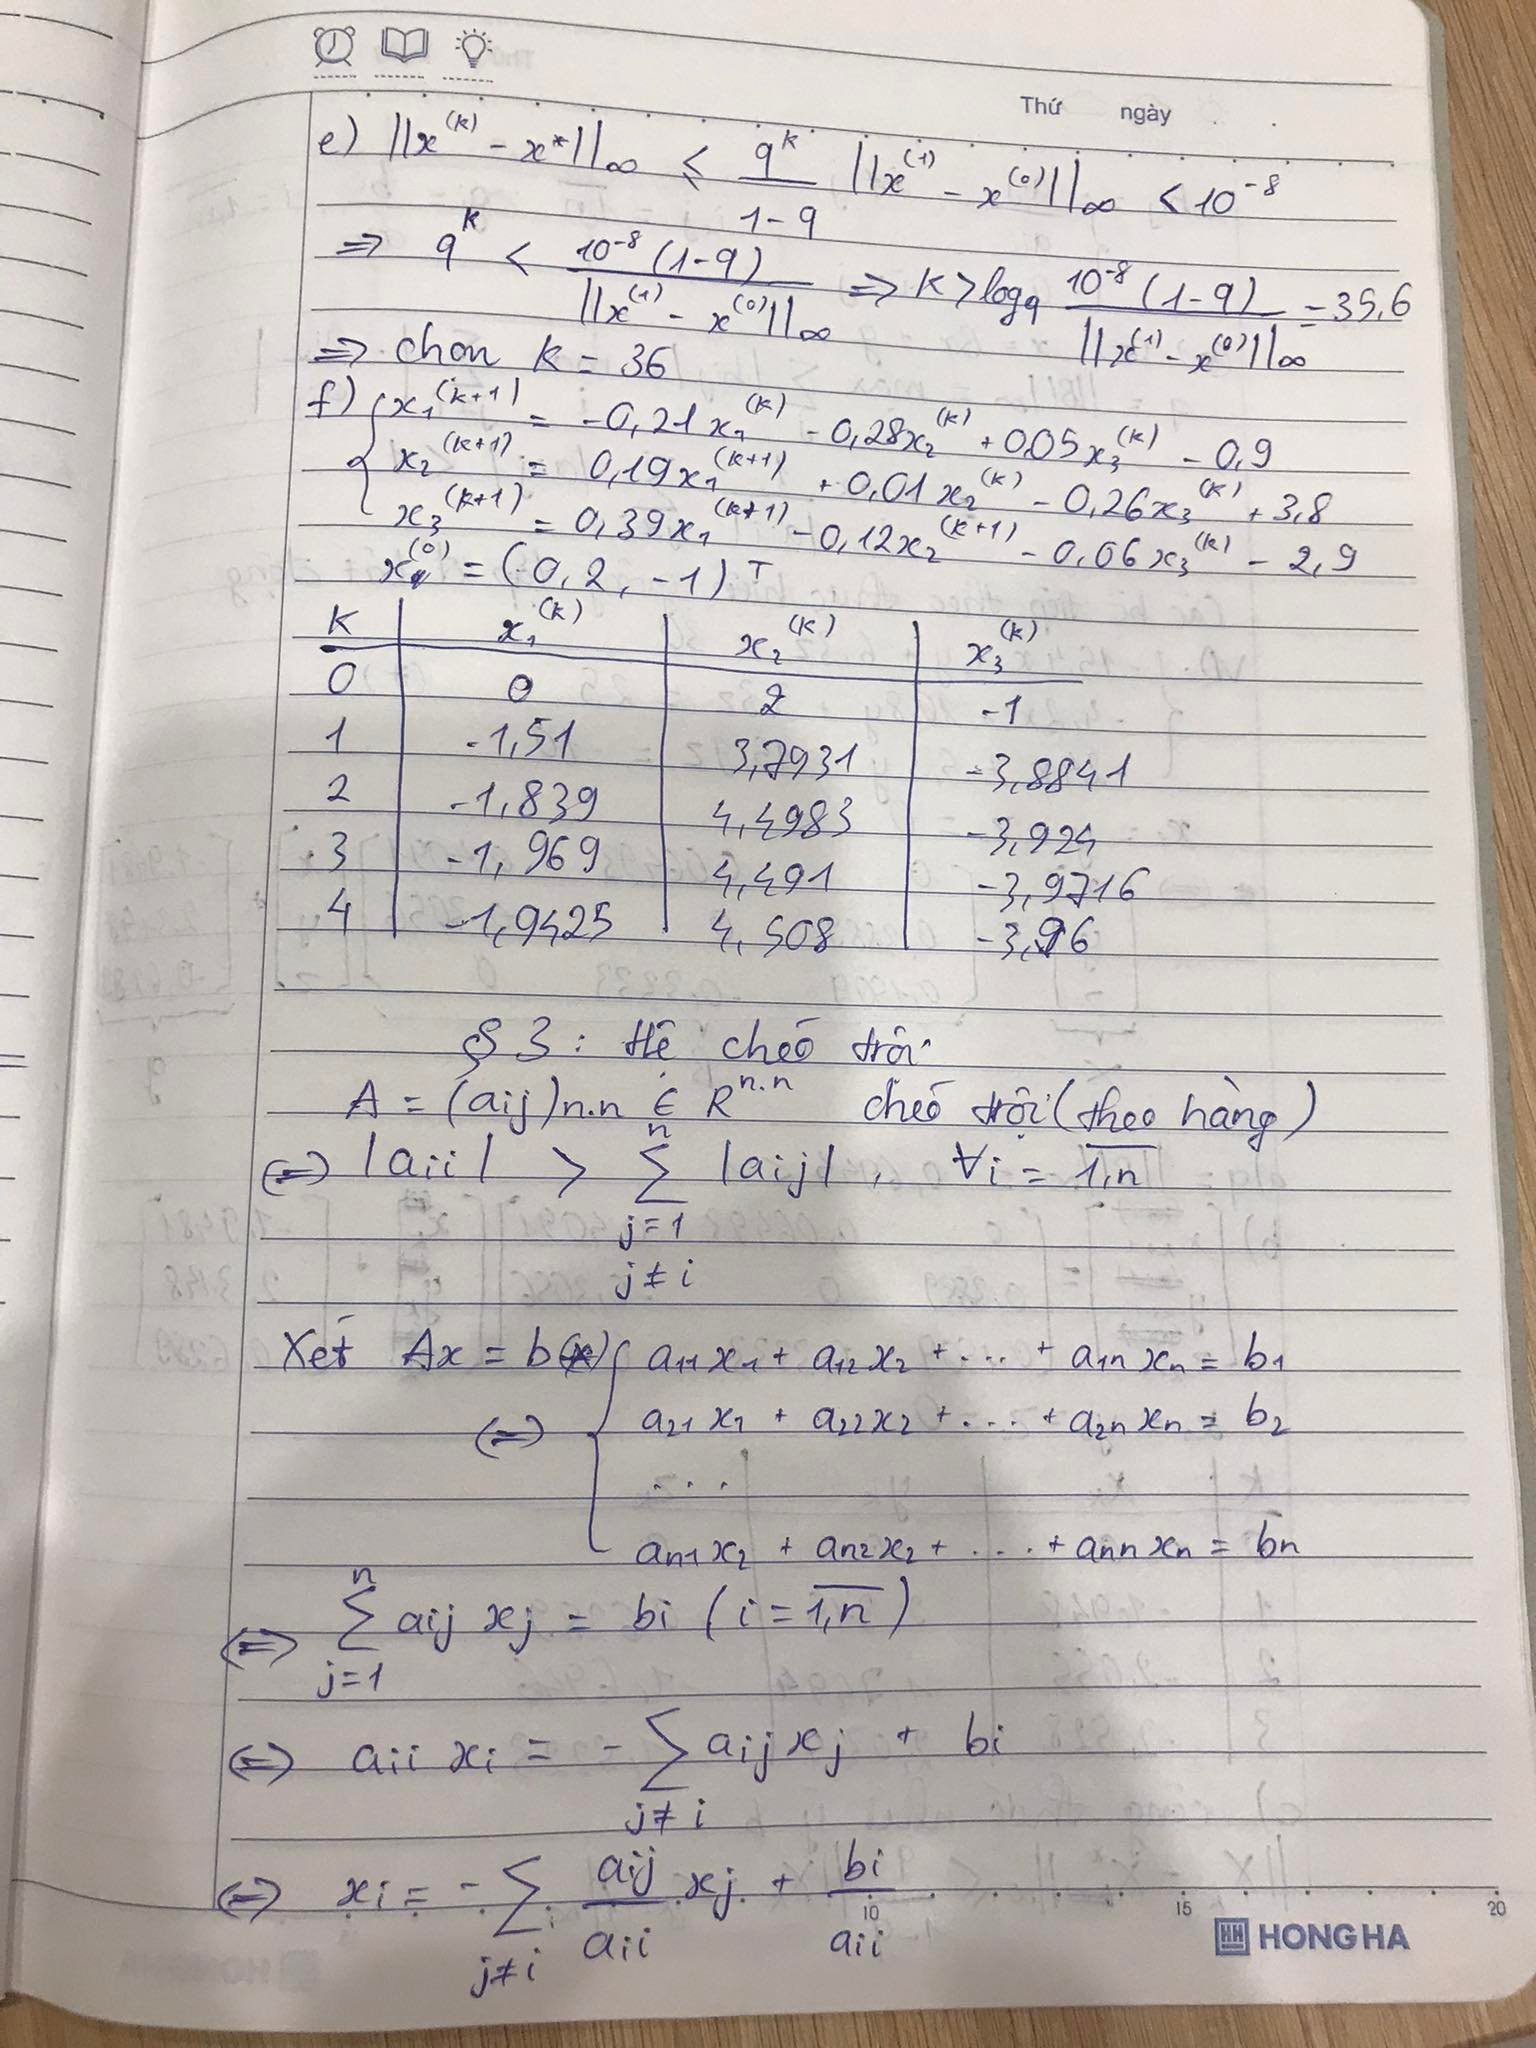 Thứ ngày
e) ||x^(k) - x*||∞ ≤ q^k/(1-q) ||x^(1) - x^(0)||∞ < 10^-8
⇒ q^k < 10^-8 (1-q) / ||x^(1) - x^(0)||∞ ⇒ k > log_q 10^-8 (1-q) / ||x^(1) - x^(0)||∞ = 35,6
⇒ chọn k = 36
f) { x1^(k+1) = -0,21x1^(k) - 0,28x2^(k) + 0,05x3^(k) - 0,9
x2^(k+1) = 0,19x1^(k+1) + 0,01x2^(k) - 0,26x3^(k) + 3,8
x3^(k+1) = 0,39x1^(k+1) - 0,12x2^(k+1) - 0,06x3^(k) - 2,9
x^(0) = (0, 2, -1)^T
k x1^(k) x2^(k) x3^(k)
0 0 2 -1
1 -1,51 3,7931 -3,8841
2 -1,839 4,4983 -3,924
3 -1,969 4,491 -3,9716
4 -1,9425 4,508 -3,96
§3: Hệ chéo trội
A = (aij)n.n ∈ R^n.n chéo trội (theo hàng)
⇔ |aii| > ∑_{j=1, j≠i}^{n} |aij|, ∀i = 1,n
Xét Ax = b (*) { a11x1 + a12x2 + ... + a1nxn = b1
⇔ a21x1 + a22x2 + ... + a2nxn = b2
...
an1x2 + an2x2 + ... + annxn = bn
⇔ ∑_{j=1}^{n} aij xj = bi (i = 1,n)
⇔ aii xi = - ∑_{j≠i} aij xj + bi
⇔ xi = - ∑_{j≠i} aij/aii xj + bi/aii
10 15 20
HH HONG HA